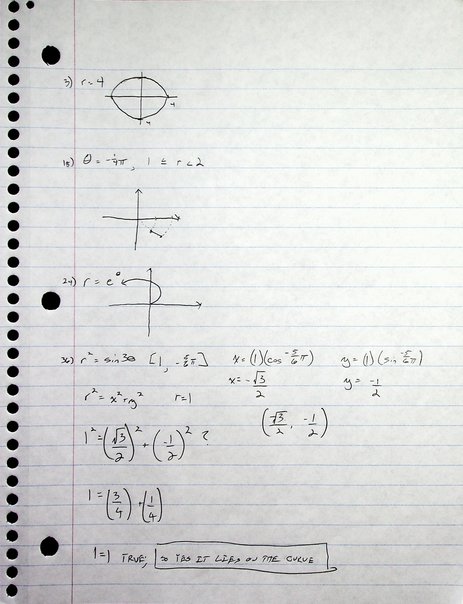 3) r = 4
4
4
18) θ = -¼π, 1 ≤ r < 2
24) r = e^θ
36) r² = sin3θ [1, -5/6π] x = (1)(cos -5/6 π) y = (1)(sin -5/6 π)
x = -√3/2 y = -1/2
r² = x² + y² r = 1
(√3/2, -1/2)
1² = (√3/2)² + (-1/2)² ?
1 = (3/4) + (1/4)
1 = 1 TRUE; so YES IT LIES ON THE CURVE